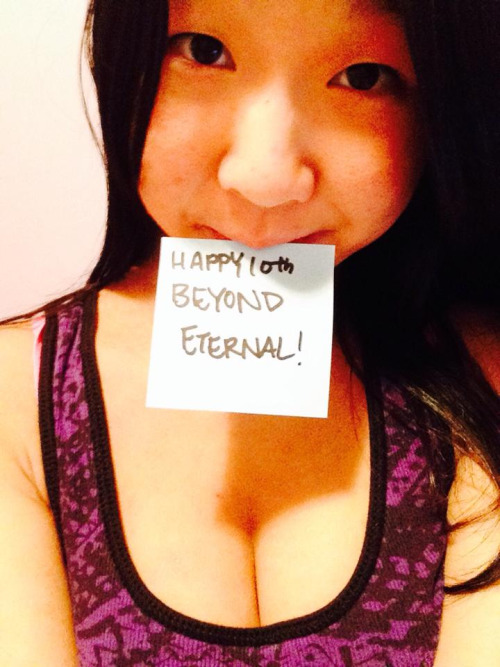 HAPPY 10th
BEYOND
ETERNAL!